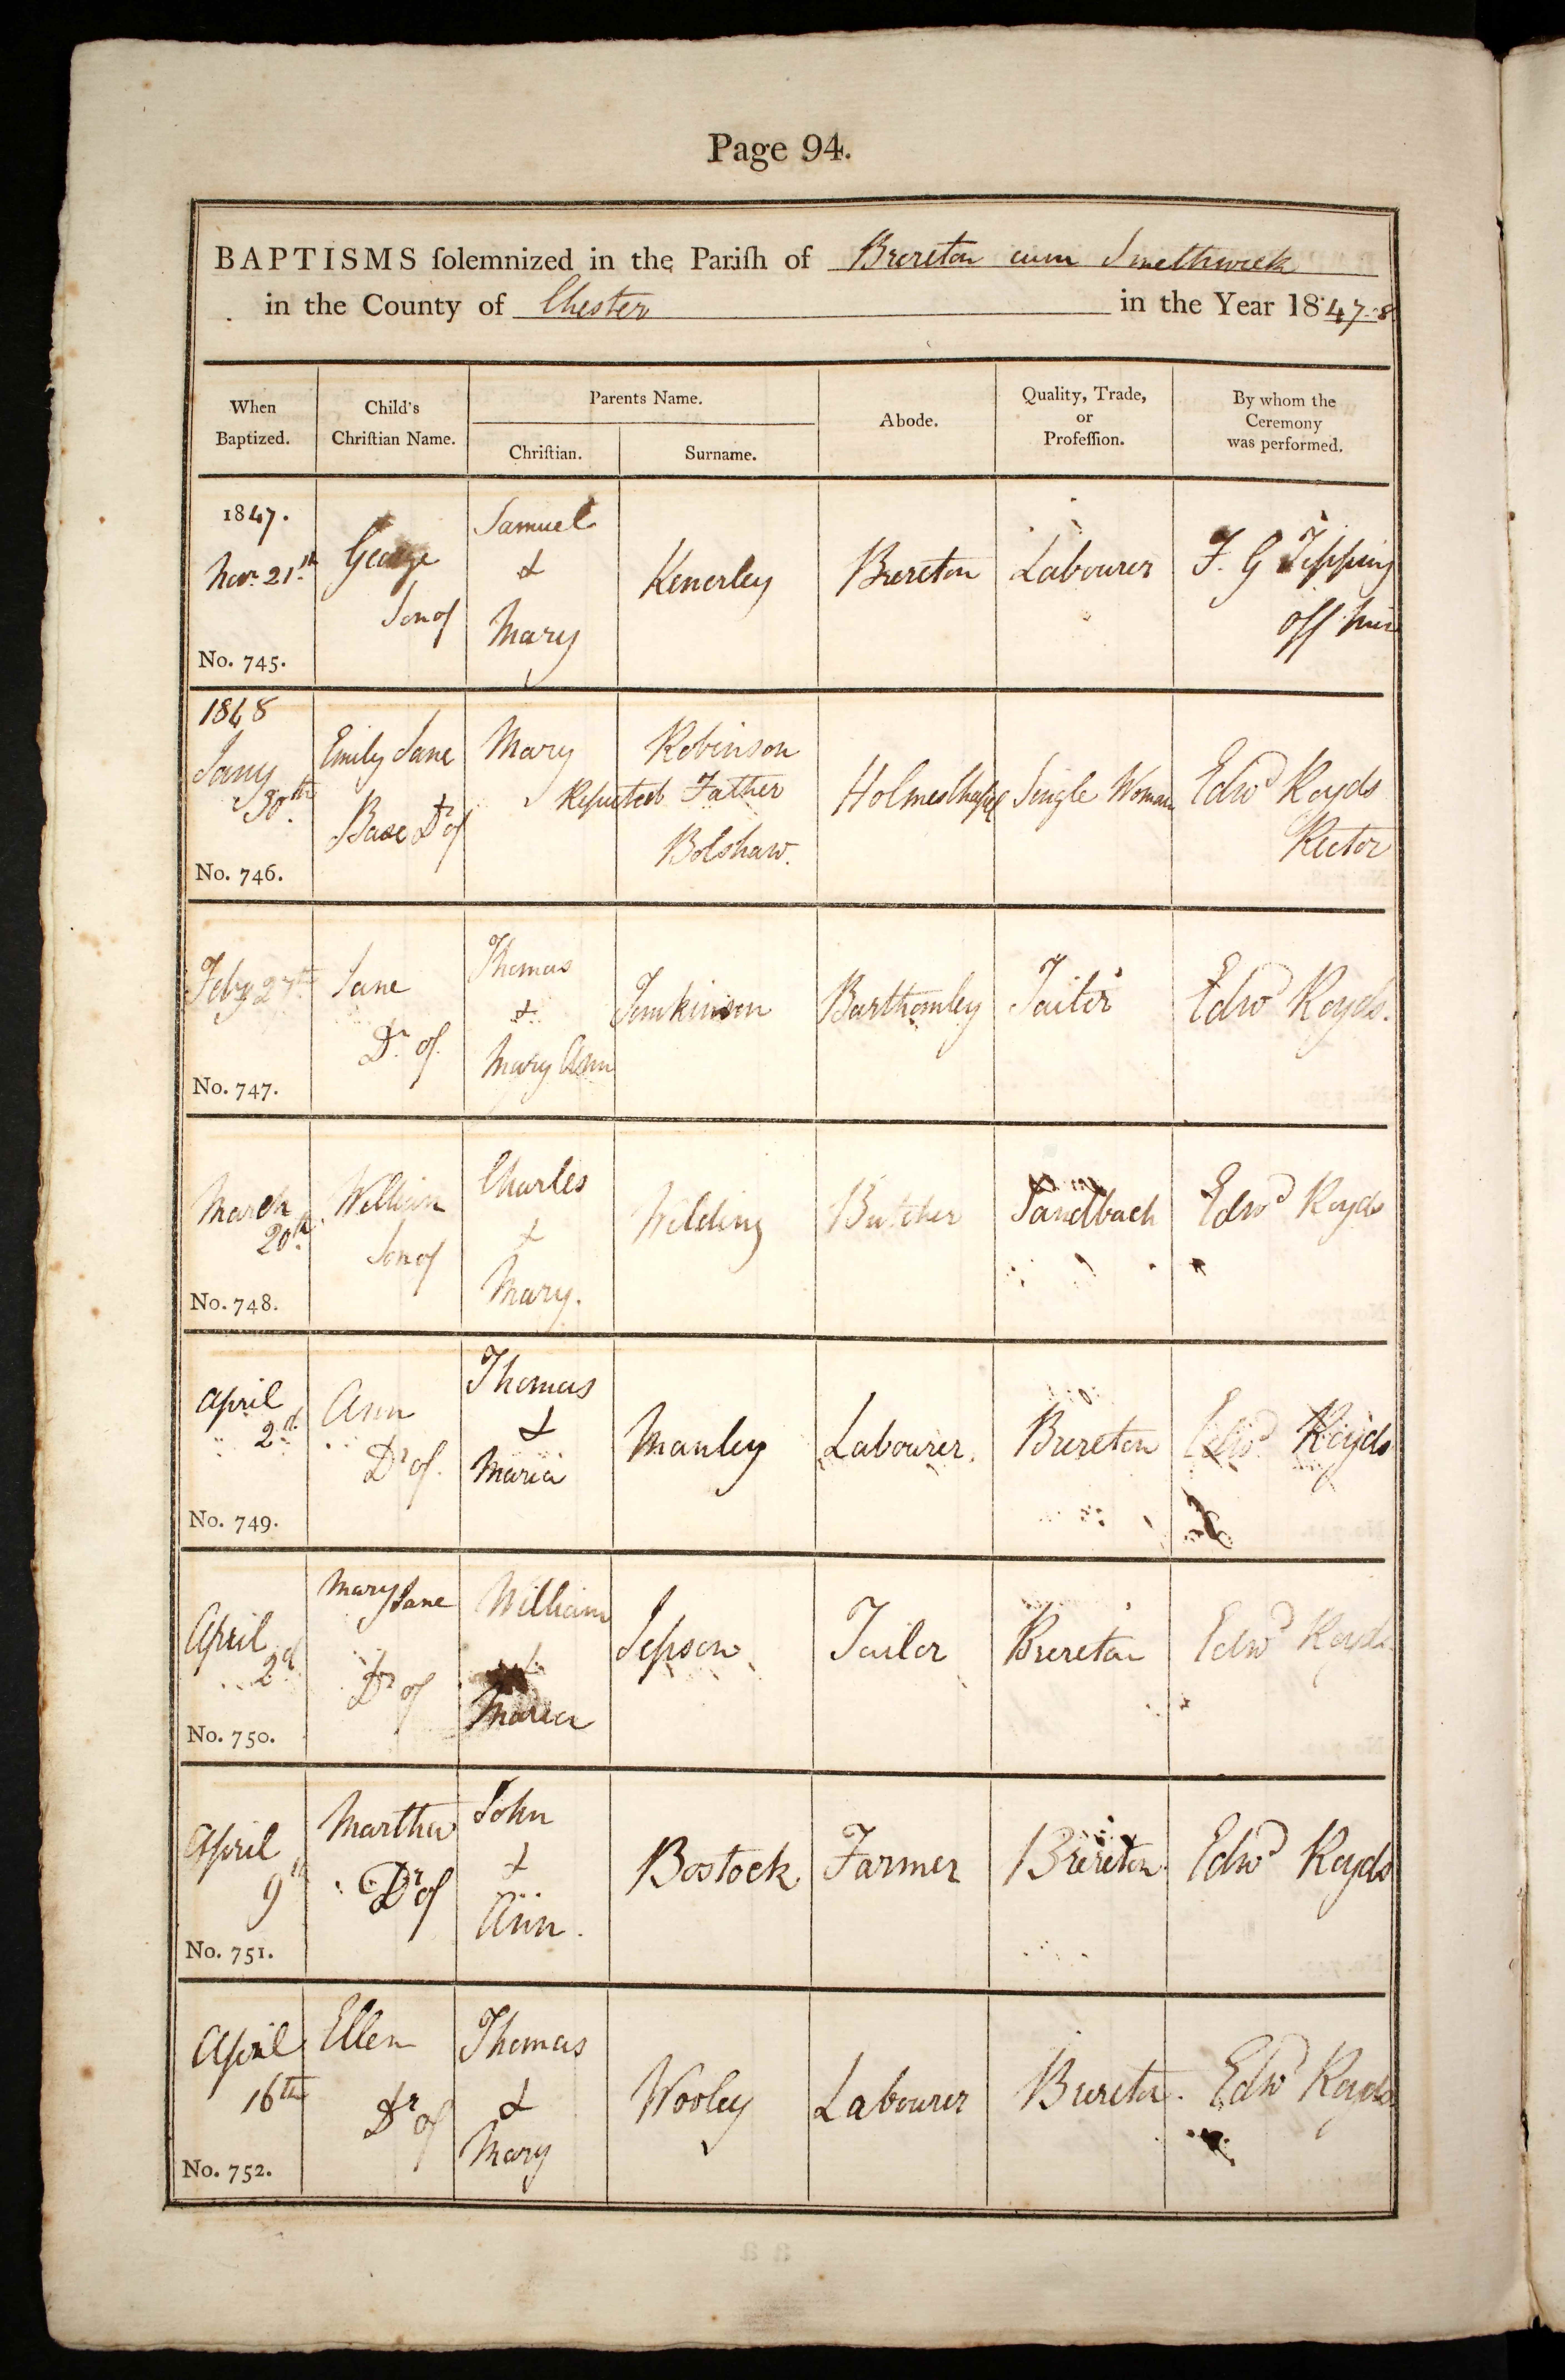 Page 94.
BAPTISMS ſolemnized in the Pariſh of Brereton cum Smethwick
in the County of Chester in the Year 1847-8
When Baptized.
Child's Chriſtian Name.
Parents Name.
Chriſtian.
Surname.
Abode.
Quality, Trade, or Profeſſion.
By whom the Ceremony was performed.
1847.
Novr 21st
No. 745.
George
Son of
Samuel
&
Mary
Kenerley
Brereton
Labourer
F. G Tipping
Off Min
1848
Jany
30th
No. 746.
Emily Jane
Base Dr of
Mary
Robinson
Reputed Father
Bolshaw.
Holmes Chapel
Single Woman
Edwd Royds
Rector
Feby 27th
No. 747.
Jane
Dr. of.
Thomas
&
Mary Ann
Tomkinson
Barthomley
Tailor
Edwd Royds.
March
20th
No. 748.
William
Son of
Charles
&
Mary.
Wilding
Butcher
Sandbach
Edwd Royds
April
2d
No. 749.
Ann
Dr of.
Thomas
&
Maria
Manley
Labourer.
Brereton
Edwd Royds
April
2d
No. 750.
Mary Jane
Dr of
William
&
Maria
Jepson
Tailor
Brereton
Edwd Royds
April
9th
No. 751.
Martha
Dr of
John
&
Ann.
Bostock
Farmer
Brereton
Edwd Royds
April
16th
No. 752.
Ellen
Dr of
Thomas
&
Mary
Wooley
Labourer
Brereton.
Edwd Royds